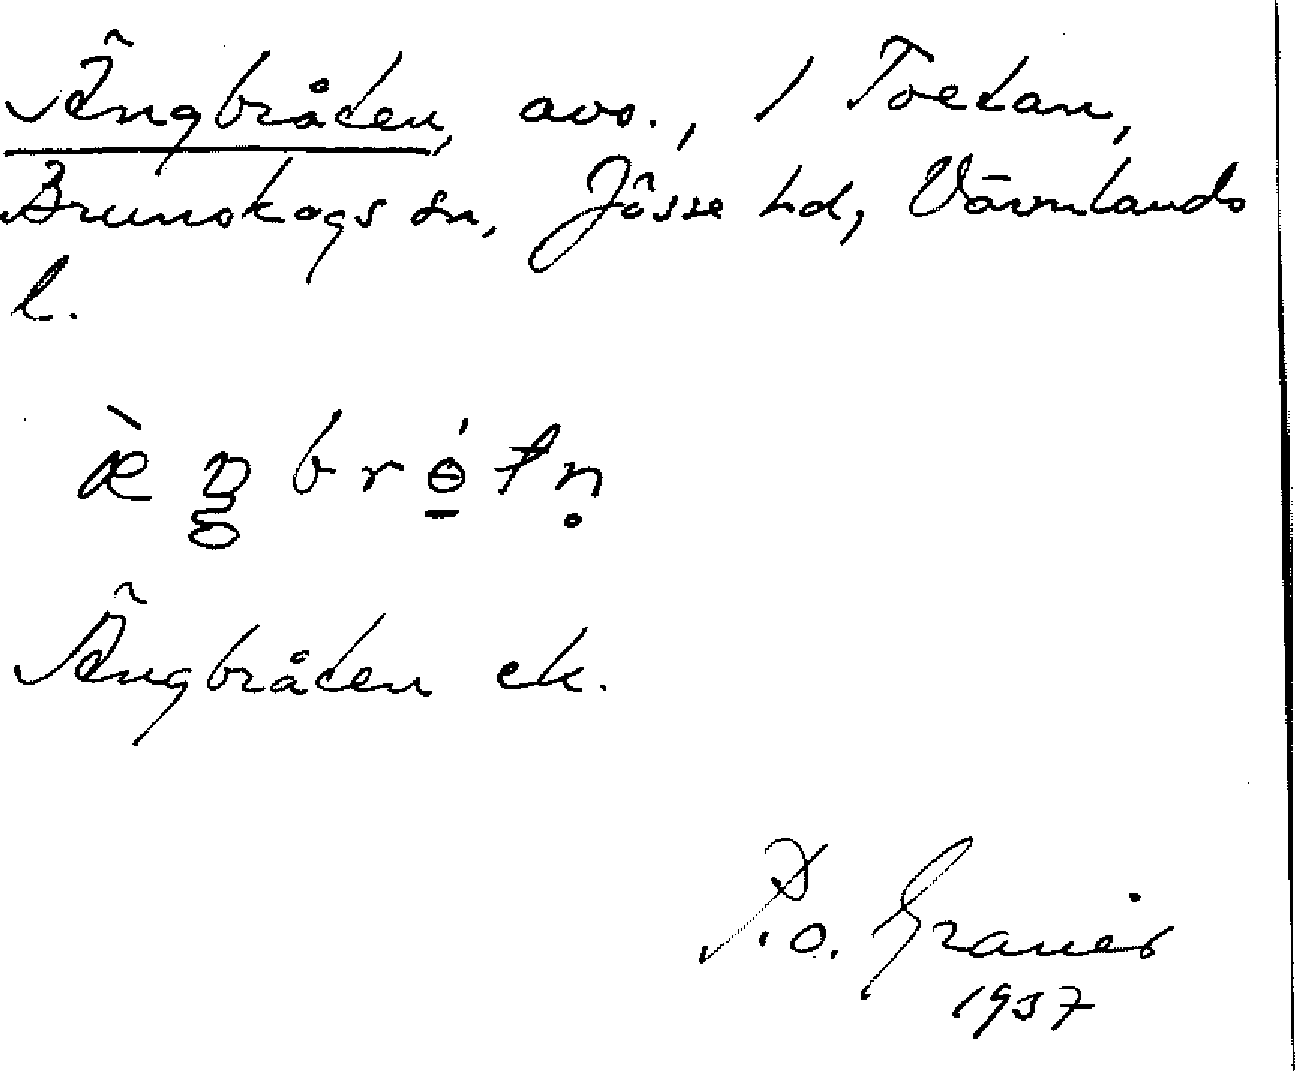 Ängbråten, avs., 1 Toetan,
Brunskogs sn, Jösse hd, Värmlands
l.
æ̀ŋbrǿ̱tṇ
Ängbråten ek.
P.o. Graner
1937